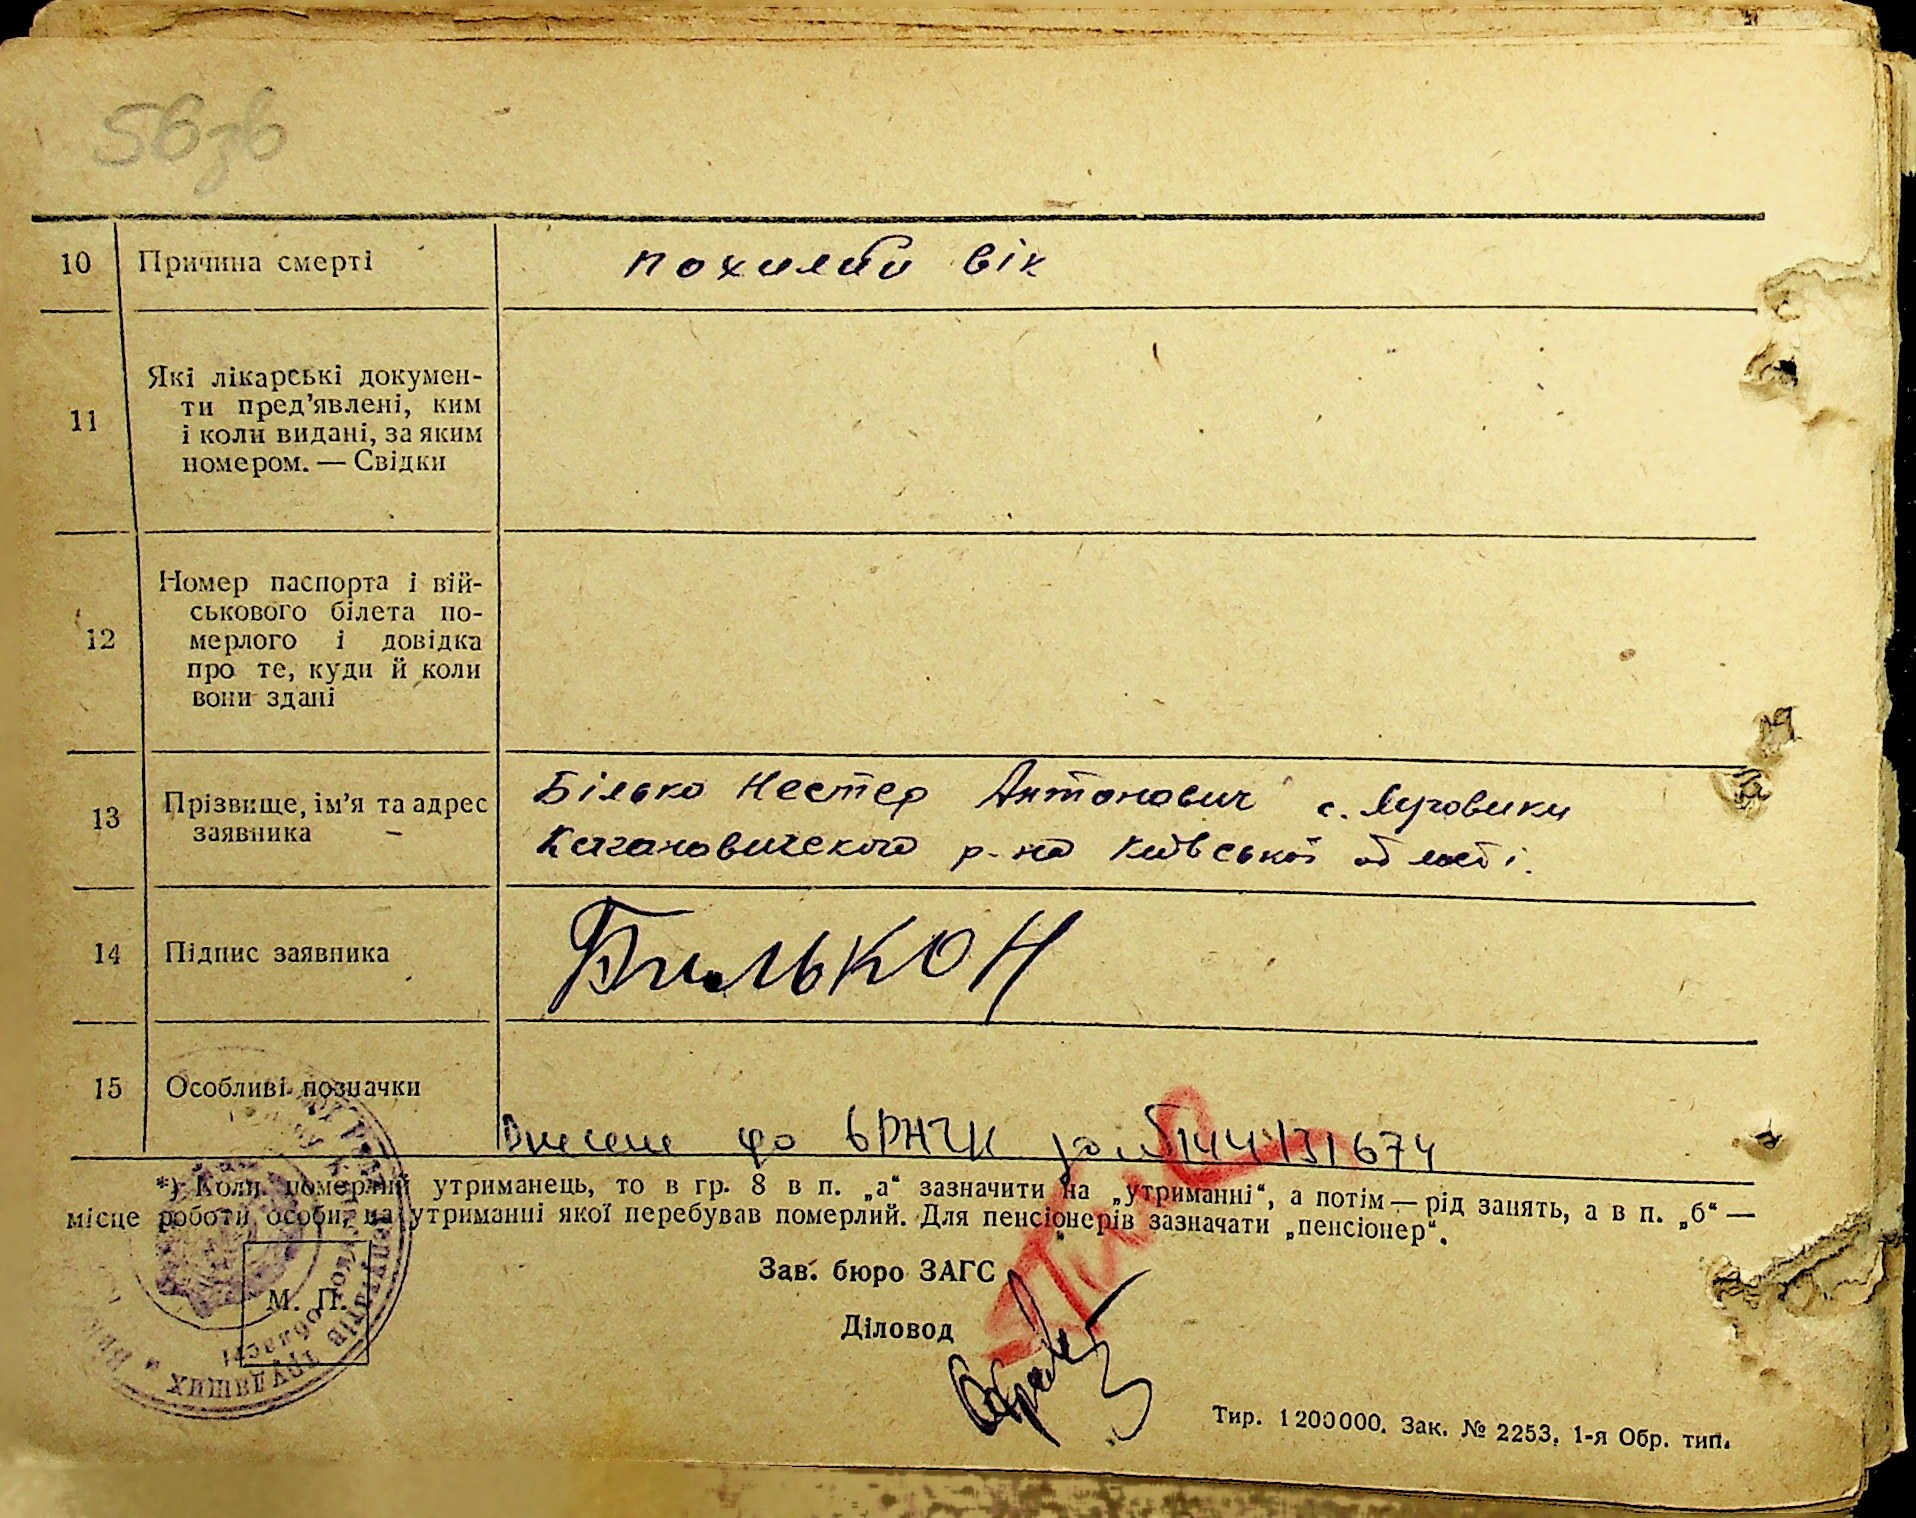 56зв
10 Причина смерті похилий вік
11 Які лікарські докумен-
ти пред'явлені, ким
і коли видані, за яким
номером. — Свідки
12 Номер паспорта і вій-
ськового білета по-
мерлого і довідка
про те, куди й коли
вони здані
13 Прізвище, ім'я та адрес
заявника
Білько Нестер Антонович с. Луговики
Кагановичського р-на Київської області.
14 Підпис заявника Билько Н
15 Особливі позначки
Внесене до ВРНЧК за №144131674
*) Коли померлий утриманець, то в гр. 8 в п. „а“ зазначити на „утриманні“, а потім — рід занять, а в п. „б“ —
місце роботи особи, на утриманні якої перебував померлий. Для пенсіонерів зазначати „пенсіонер“.
Зав. бюро ЗАГС
М. П.
Діловод
депутатів трудящих
області
Тир. 1200000. Зак. № 2253, 1-я Обр. тип.